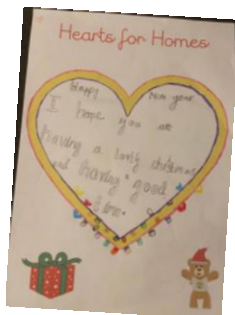 Hearts for Homes
Happy New year
I hope you are
having a lovely christmas
and having a good
time.